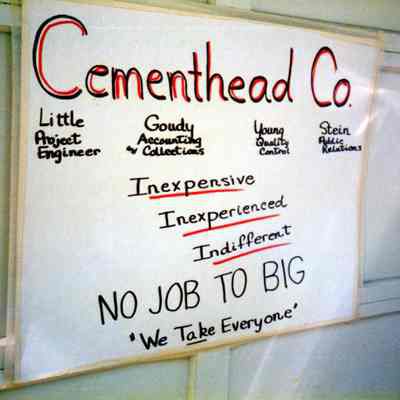 Cementhead Co.
Little Goudy Young Stein
Project Accounting Quality Public
Engineer & Collections Control Relations
Inexpensive
Inexperienced
Indifferent
NO JOB TO BIG
"We Take Everyone"